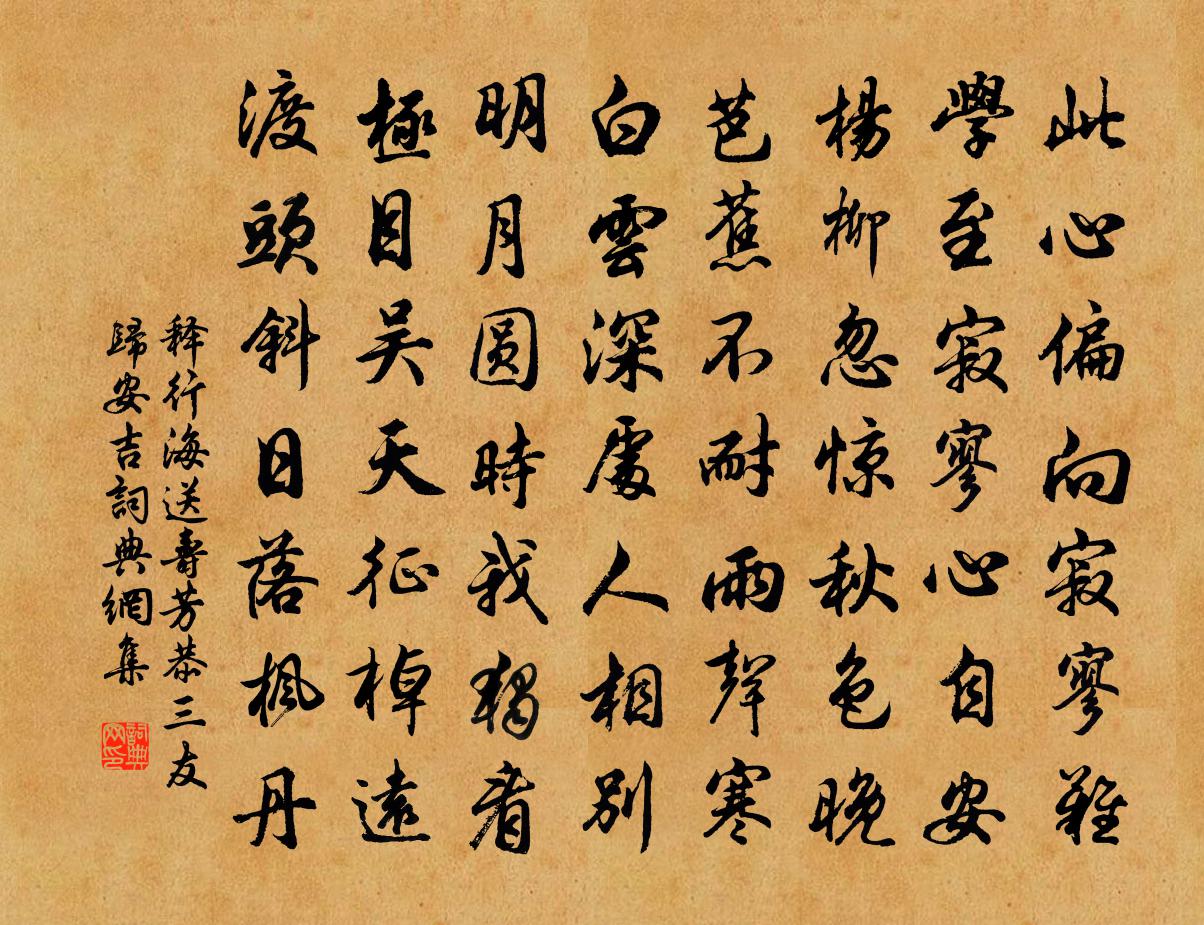 此心偏向寂寥難
學至寂寥心自安
楊柳忽惊秋色晚
芭蕉不耐雨聲寒
白雲深處人相別
明月圆時我獨看
極目吴天征棹遠
渡頭斜日落楓丹
释行海送壽芳恭三友
歸安吉詞典網集
詞典网印